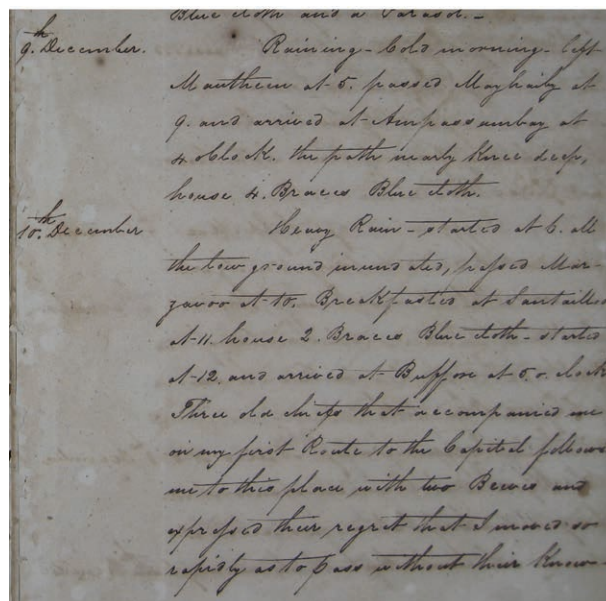 Blue Cloth and a Parasol. -
9.th December. Raining - Cold morning - left
at 5. passed at
9. and arrived at Ampassambay at
4 oClock. the path nearly Knee deep,
house 4. Braces Blue Cloth.
10.th December Heavy Rain - started at 6. all
the low ground inundated, passed Man-
garoo at 10. Breakfasted at
at 11. house 2. Braces Blue Cloth - started
at 12. and arrived at at 5. o. Clock
Three old chiefs that accompanied me
on my first Route to the Capital follows
me to this place with two Beeves and
expressed their regret that I moved so
rapidly as to pass without their Know-